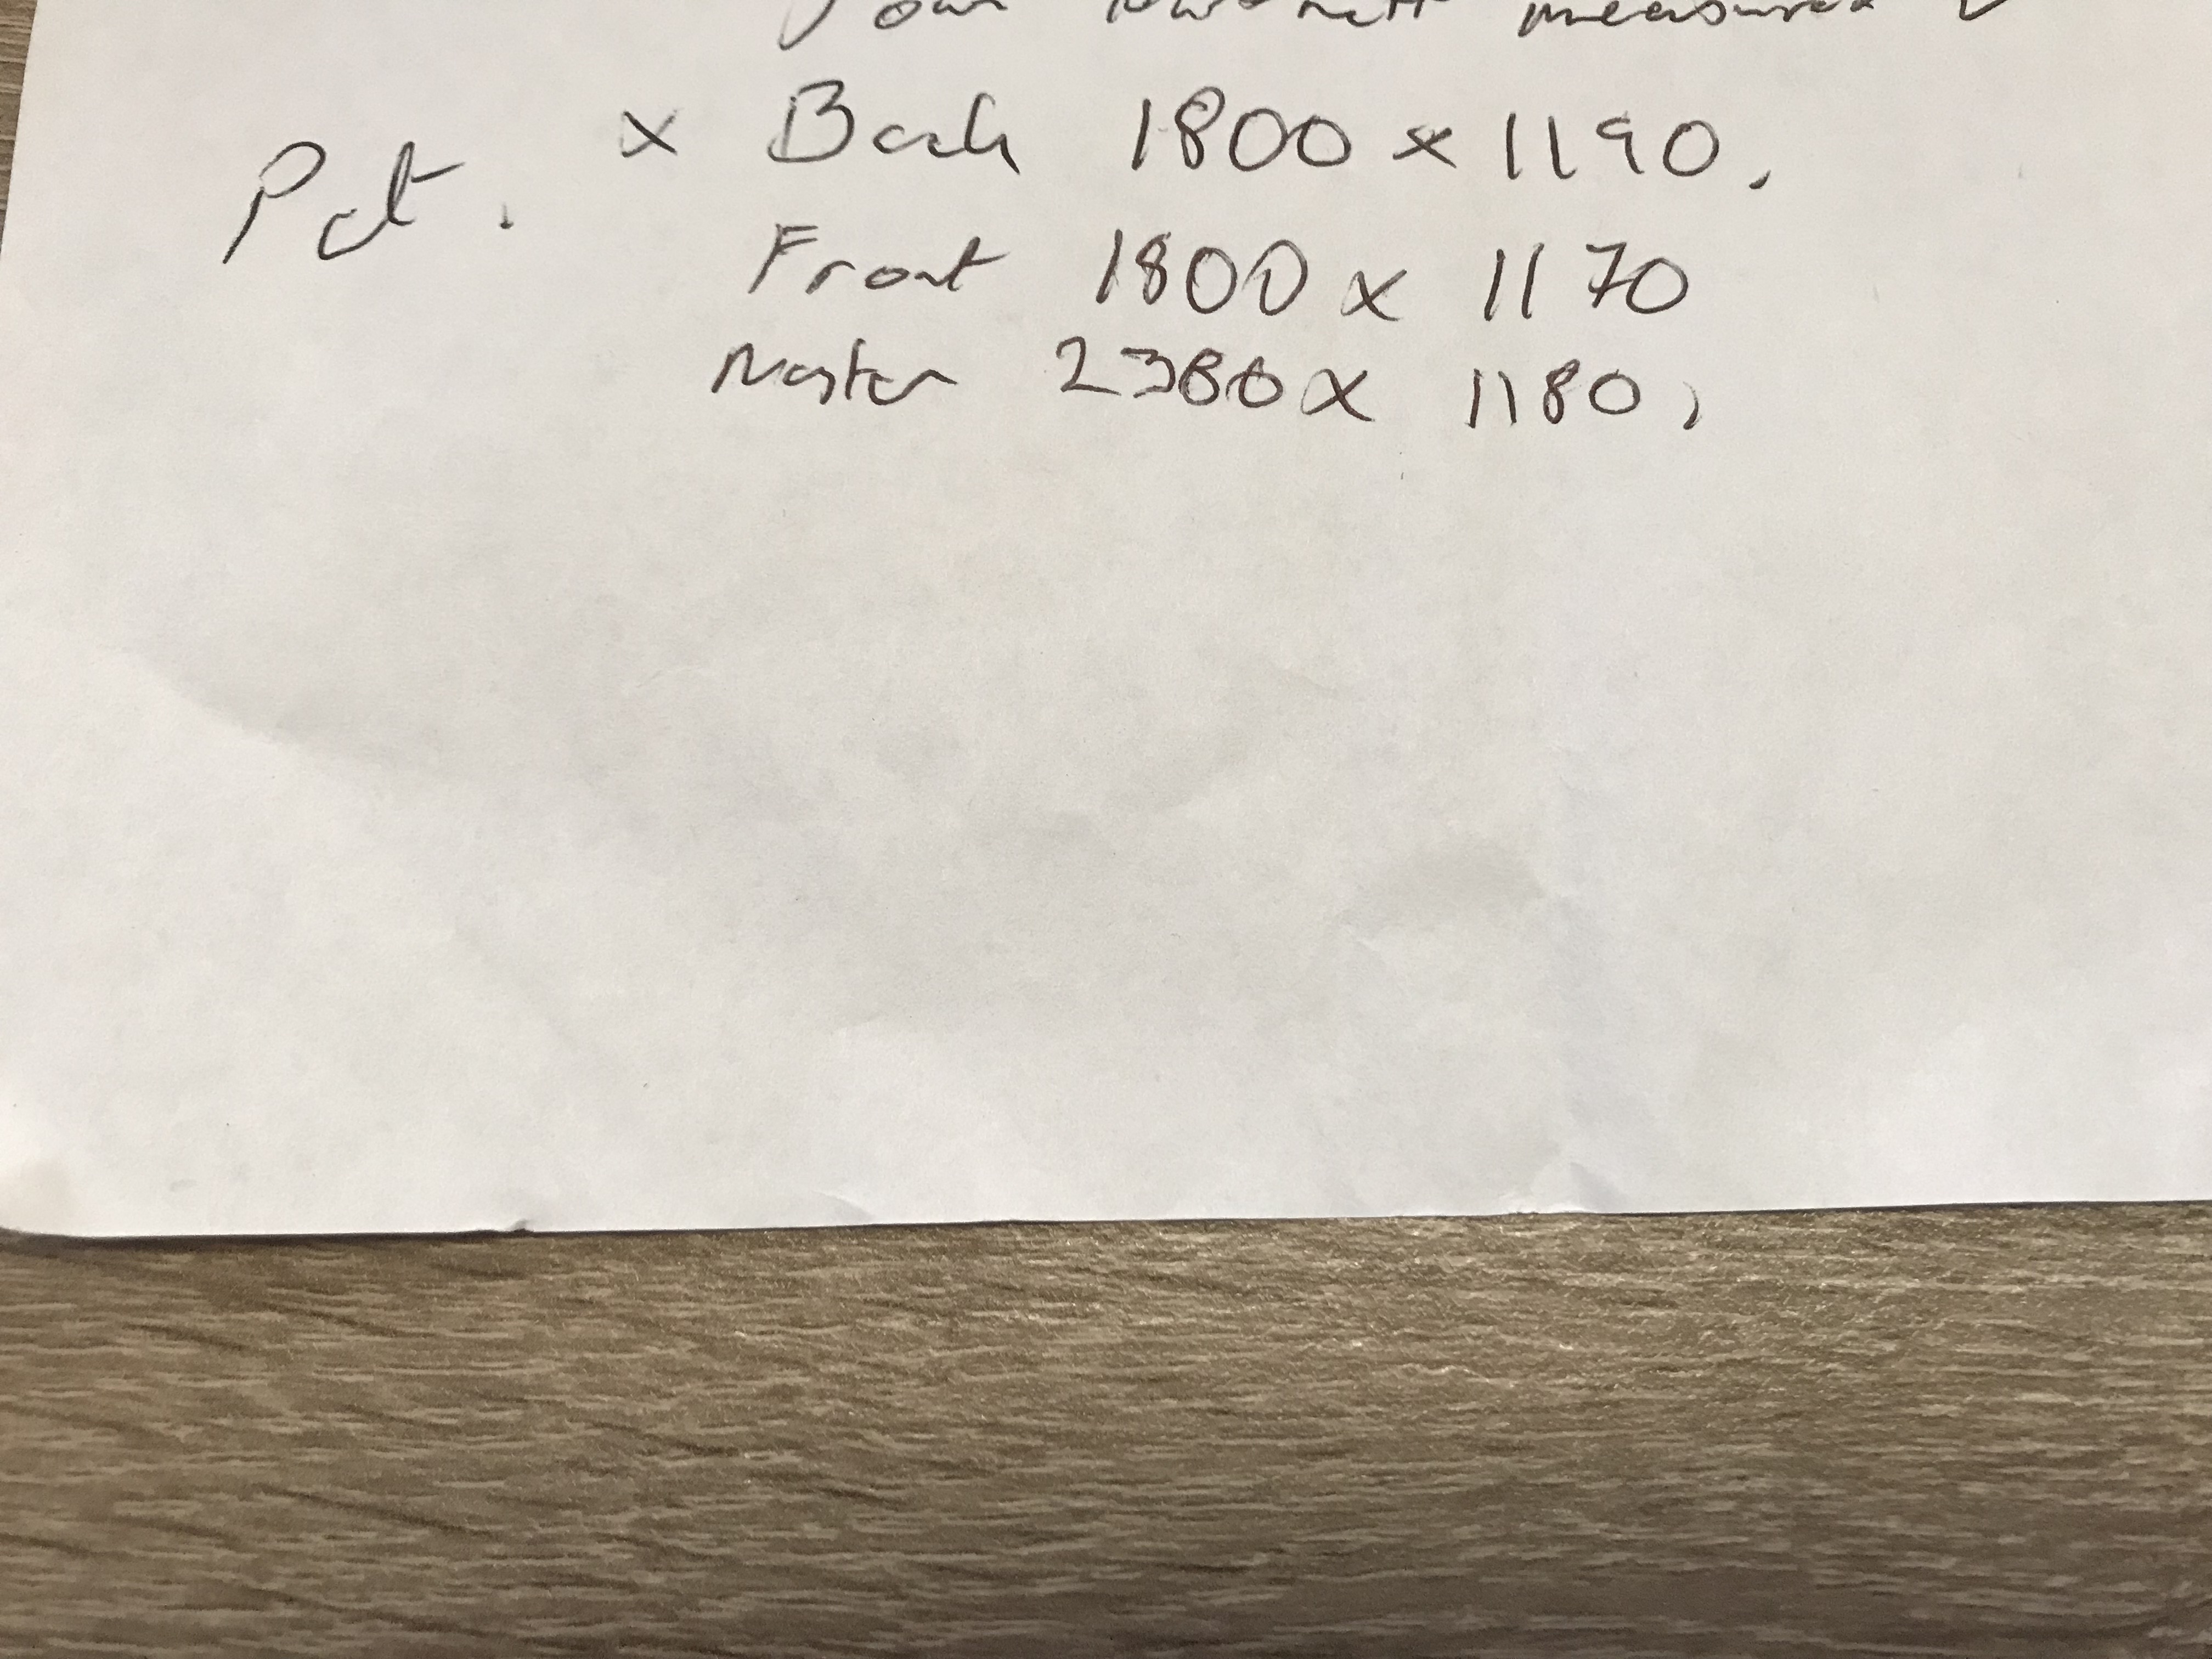 your measured
Pat. x Back 1800 x 1190.
Front 1800 x 1170
Master 2380 x 1180,